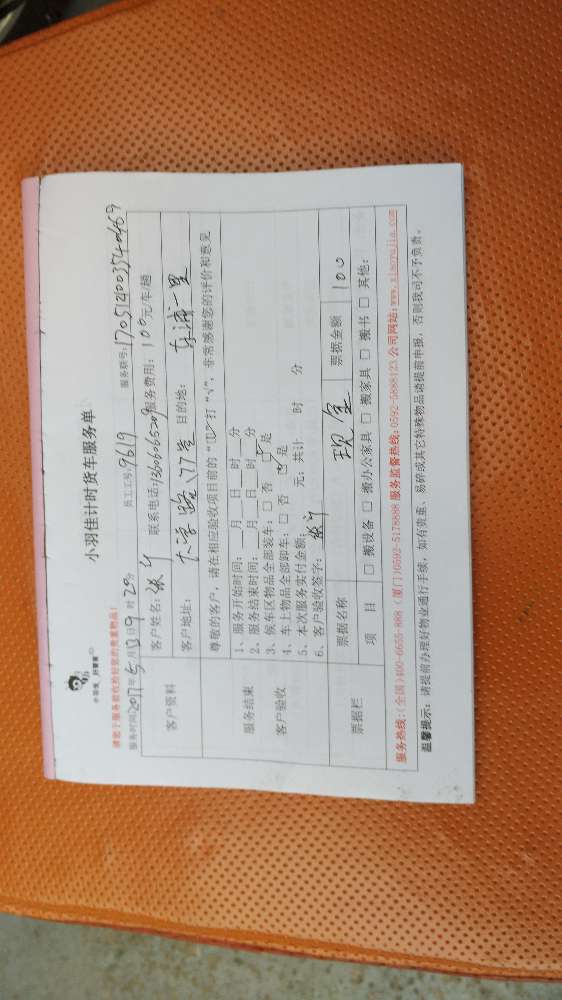 小羽佳计时货车服务单
请您于服务前收拾好您的贵重物品!
服务时间2017年5月13日9时20分 员工工号:9619 服务联号:
客户资料
客户姓名: 联系电话:13606065209 服务费用:100元/车/趟
客户地址: 目的地:东浦一里
尊敬的客户,请在相应验收项目前的“□”打“√”,非常感谢您的评价和意见
服务结束
客户验收
1、服务开始时间:__月__日__时__分
2、服务结束时间:__月__日__时__分
3、候车区物品全部装车:□ 否 是
4、车上物品全部卸车:□ 否 是
5、本次服务实付金额: 元;共计 时 分
6、客户验收签字:
票据栏
票据名称 现金 票据金额 100
项 目 □ 搬设备 □ 搬办公家具 □ 搬家具 □ 搬书 □ 其他:
服务热线:(全国)400-6655-888 (厦门)0592-5178888 服务监督热线:0592-5888123 公司网站:www.xiaoyujia.com
温馨提示:请提前办理好物业通行手续,如有贵重、易碎或其它特殊物品请提前申报,否则我司不予负责。